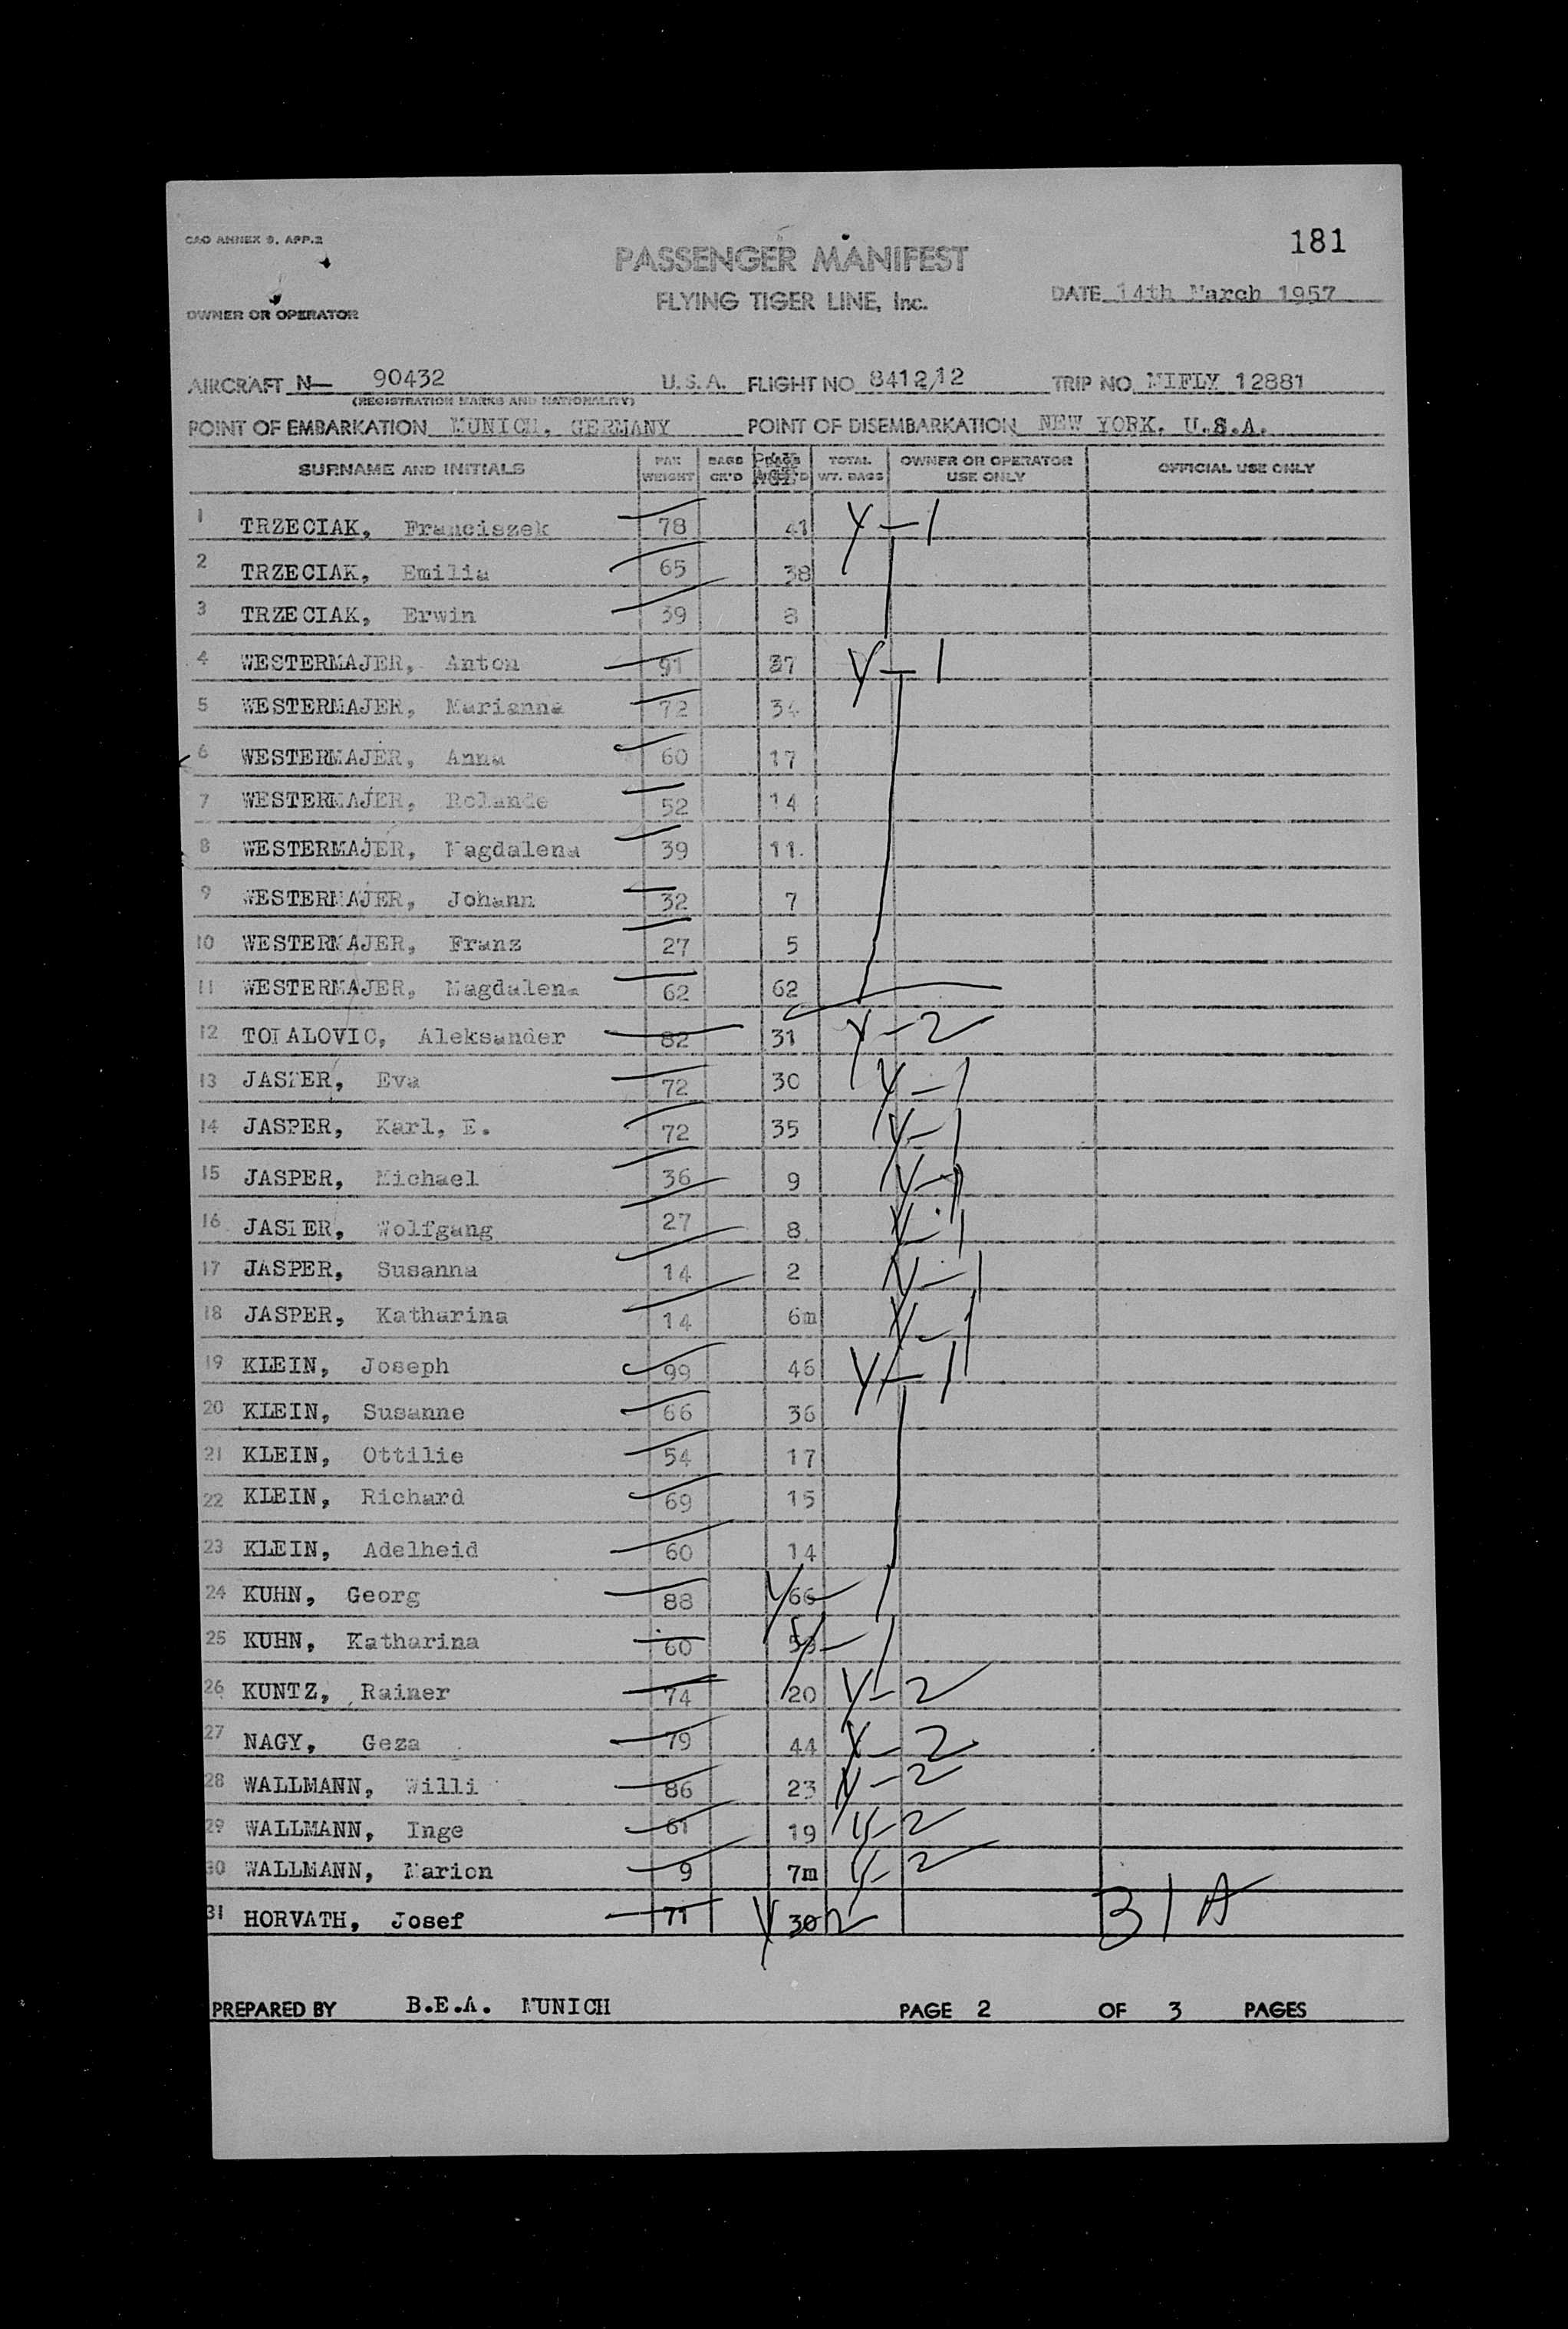 181
CAO ANNEX 9, APP.2
PASSENGER MANIFEST
FLYING TIGER LINE, Inc.
DATE 14th March 1957
OWNER OR OPERATOR
AIRCRAFT N— 90432 U.S.A. FLIGHT NO 8412/12 TRIP NO. MIFLY 12881
(REGISTRATION MARKS AND NATIONALITY)
POINT OF EMBARKATION MUNICH, GERMANY POINT OF DISEMBARKATION NEW YORK, U.S.A.
SURNAME AND INITIALS PAX WEIGHT BAGS CK'D TOTAL WT. BAGS OWNER OR OPERATOR USE ONLY OFFICIAL USE ONLY
1 TRZECIAK, Franciszek 78 41 Y-1
2 TRZECIAK, Emilia 65 38
3 TRZECIAK, Erwin 39 8
4 WESTERMAJER, Anton 91 37 Y-1
5 WESTERMAJER, Marianna 72 34
6 WESTERMAJER, Anna 60 17
7 WESTERMAJER, Rolande 52 14
8 WESTERMAJER, Magdalena 39 11.
9 WESTERMAJER, Johann 32 7
10 WESTERMAJER, Franz 27 5
11 WESTERMAJER, Magdalena 62 62
12 TOPALOVIC, Aleksander 82 31 Y-2
13 JASPER, Eva 72 30 Y-1
14 JASPER, Karl, E. 72 35 Y-1
15 JASPER, Michael 36 9 Y-1
16 JASPER, Wolfgang 27 8 Y-1
17 JASPER, Susanna 14 2 Y-1
18 JASPER, Katharina 14 6m Y-1
19 KLEIN, Joseph 99 46 Y-1
20 KLEIN, Susanne 66 36
21 KLEIN, Ottilie 54 17
22 KLEIN, Richard 69 15
23 KLEIN, Adelheid 60 14
24 KUHN, Georg 88 66 Y-1
25 KUHN, Katharina 60 Y-1
26 KUNTZ, Rainer 74 20 Y-2
27 NAGY, Geza 79 44 Y-2
28 WALLMANN, Willi 86 23 Y-2
29 WALLMANN, Inge 61 19 Y-2
30 WALLMANN, Marion 9 7m Y-2
31 HORVATH, Josef 71 30 Y-2 31 A
PREPARED BY B.E.A. MUNICH PAGE 2 OF 3 PAGES